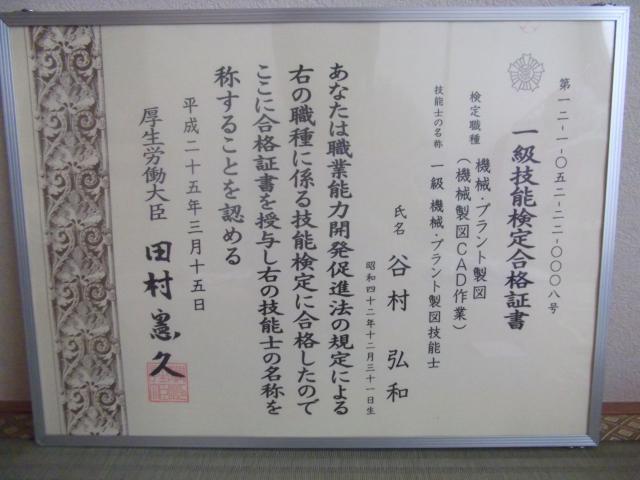 第一二-一-〇五二-二二-〇〇〇八号
一級技能検定合格証書
検定職種
機械・プラント製図
(機械製図CAD作業)
技能士の名称
一級 機械・プラント製図技能士
氏名 谷村 弘和
昭和四十二年十二月三十一日生
あなたは職業能力開発促進法の規定による
右の職種に係る技能検定に合格したので
ここに合格証書を授与し右の技能士の名称を
称することを認める
平成二十五年三月十五日
厚生労働大臣 田村憲久